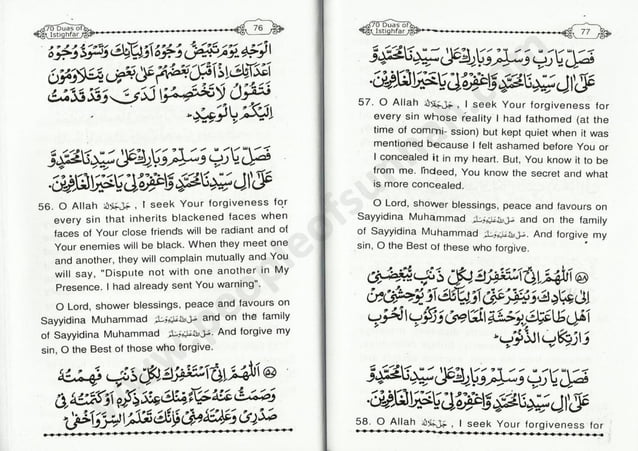 70 Duas of
Istighfar
76
الْوَجْهِ يَوْمَ تَبْيَضُّ وُجُوْهُ اَوْلِيَآئِكَ وَتَسْوَدُّ وُجُوْهُ
اَعْدَآئِكَ اِذَا اَقْبَلَ بَعْضُهُمْ عَلٰى بَعْضٍ يَّتَلَاوَمُوْنَ
فَتَقُوْلُ لَا تَخْتَصِمُوْا لَدَيَّ وَقَدْ قَدَّمْتُ
اِلَيْكُمْ بِالْوَعِيْدِ
فَصَلِّ يَارَبِّ وَسَلِّمْ وَبَارِكْ عَلٰى سَيِّدِنَا مُحَمَّدٍ وَّ
عَلٰٓى اٰلِ سَيِّدِنَا مُحَمَّدٍ وَّاغْفِرْهُ لِيْ يَاخَيْرَ الْغَافِرِيْنَ۔
56. O Allah جَلَّ جَلَالُهٗ, I seek Your forgiveness for
every sin that inherits blackened faces when
faces of Your close friends will be radiant and of
Your enemies will be black. When they meet one
and another, they will complain mutually and You
will say, "Dispute not with one another in My
Presence. I had already sent You warning".
O Lord, shower blessings, peace and favours on
Sayyidina Muhammad صَلَّى اللهُ عَلَيْهِ وَسَلَّمَ and on the family
of Sayyidina Muhammad صَلَّى اللهُ عَلَيْهِ وَسَلَّمَ. And forgive my
sin, O the Best of those who forgive.
۵۷ اَللّٰهُمَّ اِنِّيْٓ اَسْتَغْفِرُكَ لِكُلِّ ذَنْۢبٍ فَهِمْتُهٗ
وَصَمَتُّ عَنْهُ حَيَآءً مِّنْكَ عِنْدَ ذِكْرِهٖٓ اَوْ كَتَمْتُهٗ فِيْ
صَدْرِيْ وَعَلِمْتَهٗ مِنِّيْ فَاِنَّكَ تَعْلَمُ السِّرَّ وَاَخْفٰى
70 Duas of
Istighfar
77
فَصَلِّ يَارَبِّ وَسَلِّمْ وَبَارِكْ عَلٰى سَيِّدِنَا مُحَمَّدٍ وَّ
عَلٰٓى اٰلِ سَيِّدِنَا مُحَمَّدٍ وَّاغْفِرْهُ لِيْ يَاخَيْرَ الْغَافِرِيْنَ۔
57. O Allah جَلَّ جَلَالُهٗ, I seek Your forgiveness for
every sin whose reality I had fathomed (at the
time of commi ssion) but kept quiet when it was
mentioned because I felt ashamed before You or
I concealed it in my heart. But, You know it to be
from me. Indeed, You know the secret and what
is more concealed.
O Lord, shower blessings, peace and favours on
Sayyidina Muhammad صَلَّى اللهُ عَلَيْهِ وَسَلَّمَ and on the family
of Sayyidina Muhammad صَلَّى اللهُ عَلَيْهِ وَسَلَّمَ. And forgive my
sin, O the Best of those who forgive.
۵۸ اَللّٰهُمَّ اِنِّيْٓ اَسْتَغْفِرُكَ لِكُلِّ ذَنْۢبٍ يُّبَغِّضُنِيْٓ
اِلٰى عِبَادِكَ وَيُنَفِّرُ عَنِّيْٓ اَوْلِيَآئَكَ اَوْ يُوْحِشُنِيْ مِنْ
اَهْلِ طَاعَتِكَ بِوَحْشَةِ الْمَعَاصِيْ وَرُكُوْبِ الْحُوْبِ
وَارْتِكَابِ الذُّنُوْبِ
فَصَلِّ يَارَبِّ وَسَلِّمْ وَبَارِكْ عَلٰى سَيِّدِنَا مُحَمَّدٍ وَّ
عَلٰٓى اٰلِ سَيِّدِنَا مُحَمَّدٍ وَّاغْفِرْهُ لِيْ يَاخَيْرَ الْغَافِرِيْنَ۔
58. O Allah جَلَّ جَلَالُهٗ, I seek Your forgiveness for